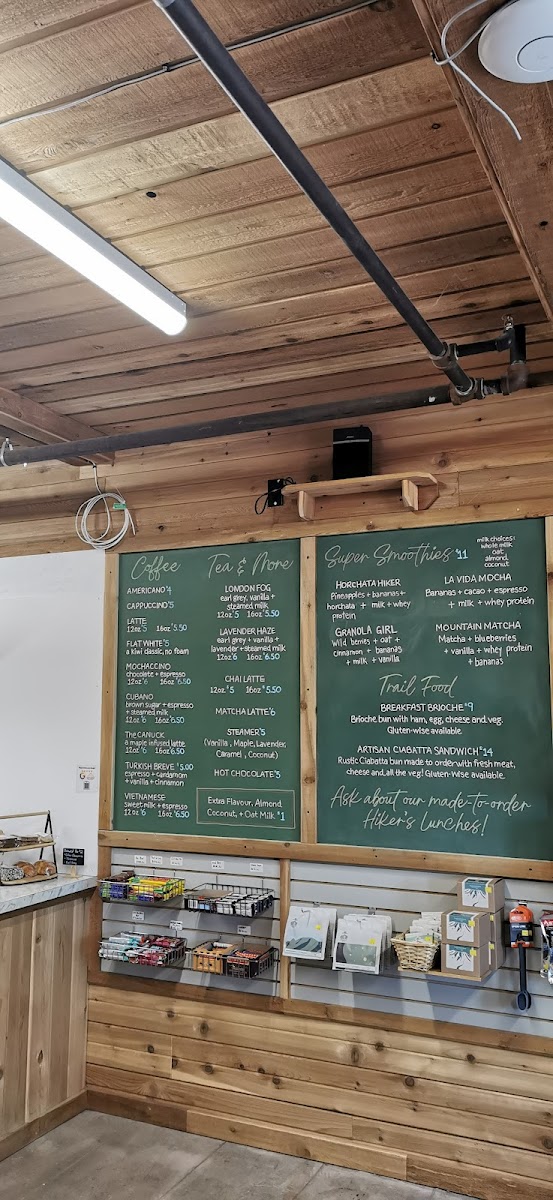 Coffee
AMERICANO $4
CAPPUCCINO $5
LATTE
12oz $5 16oz $5.50
FLAT WHITE $5
a kiwi classic, no foam
MOCHACCINO
chocolate + espresso
12oz $6 16oz $6.50
CUBANO
brown sugar + espresso
+ steamed milk
12oz $6 16oz $6.50
The CANUCK
a maple infused latte
12oz $6 16oz $6.50
TURKISH BREVE $5.00
espresso + cardamom
+ vanilla + cinnamon
VIETNAMESE
sweet milk + espresso
12oz $6 16oz $6.50
Tea & More
LONDON FOG
earl grey, vanilla +
steamed milk
12oz $5 16oz $5.50
LAVENDER HAZE
earl grey + vanilla +
lavender + steamed milk
12oz $6 16oz $6.50
CHAI LATTE
12oz $5 16oz $5.50
MATCHA LATTE $6
STEAMER $5
(Vanilla, Maple, Lavender,
Caramel, Coconut)
HOT CHOCOLATE $5
Extra Flavour, Almond,
Coconut, + Oat Milk $1
Super Smoothies $11
milk choices:
whole milk
oat
almond
coconut
HORCHATA HIKER
Pineapples + bananas +
horchata + milk + whey
protein
GRANOLA GIRL
Wild berries + oat +
cinnamon + bananas
+ milk + vanilla
LA VIDA MOCHA
Bananas + cacao + espresso
+ milk + whey protein
MOUNTAIN MATCHA
Matcha + blueberries
+ vanilla + whey protein
+ bananas
Trail Food
BREAKFAST BRIOCHE $9
Brioche bun with ham, egg, cheese and veg.
Gluten-wise available.
ARTISAN CIABATTA SANDWICH $14
Rustic Ciabatta bun made to order with fresh meat,
cheese and, all the veg! Gluten-Wise available.
Ask about our made-to-order
Hiker's Lunches!